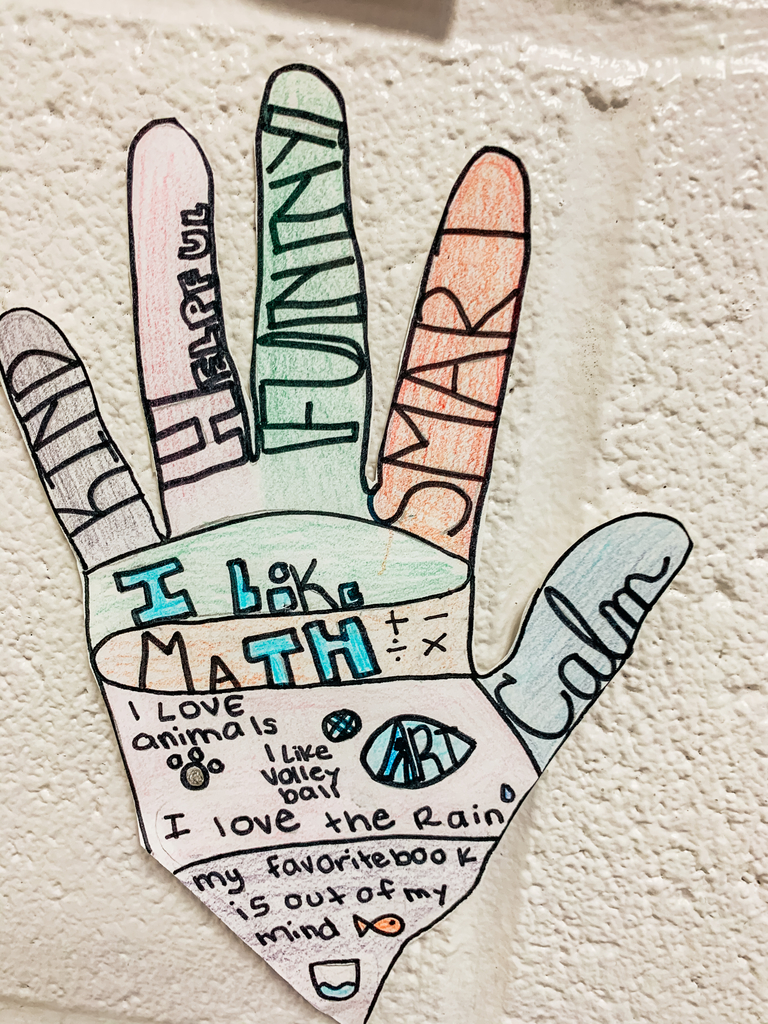 KIND
HELPFUL
FUNNY
SMART
Calm
I LiKe
MATH + - ÷ ×
I LOVE
animals
I Like
Volley
ball
ART
I love the Rain
my favorite book
is out of my
mind